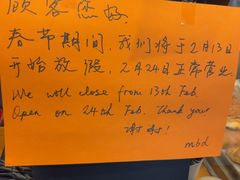 顾客您好
春节期间，我们将于2月13日
开始放假，2月24日正常营业.
We will close from 13th Feb.
Open on 24th Feb. Thank you!
谢谢！
mbd